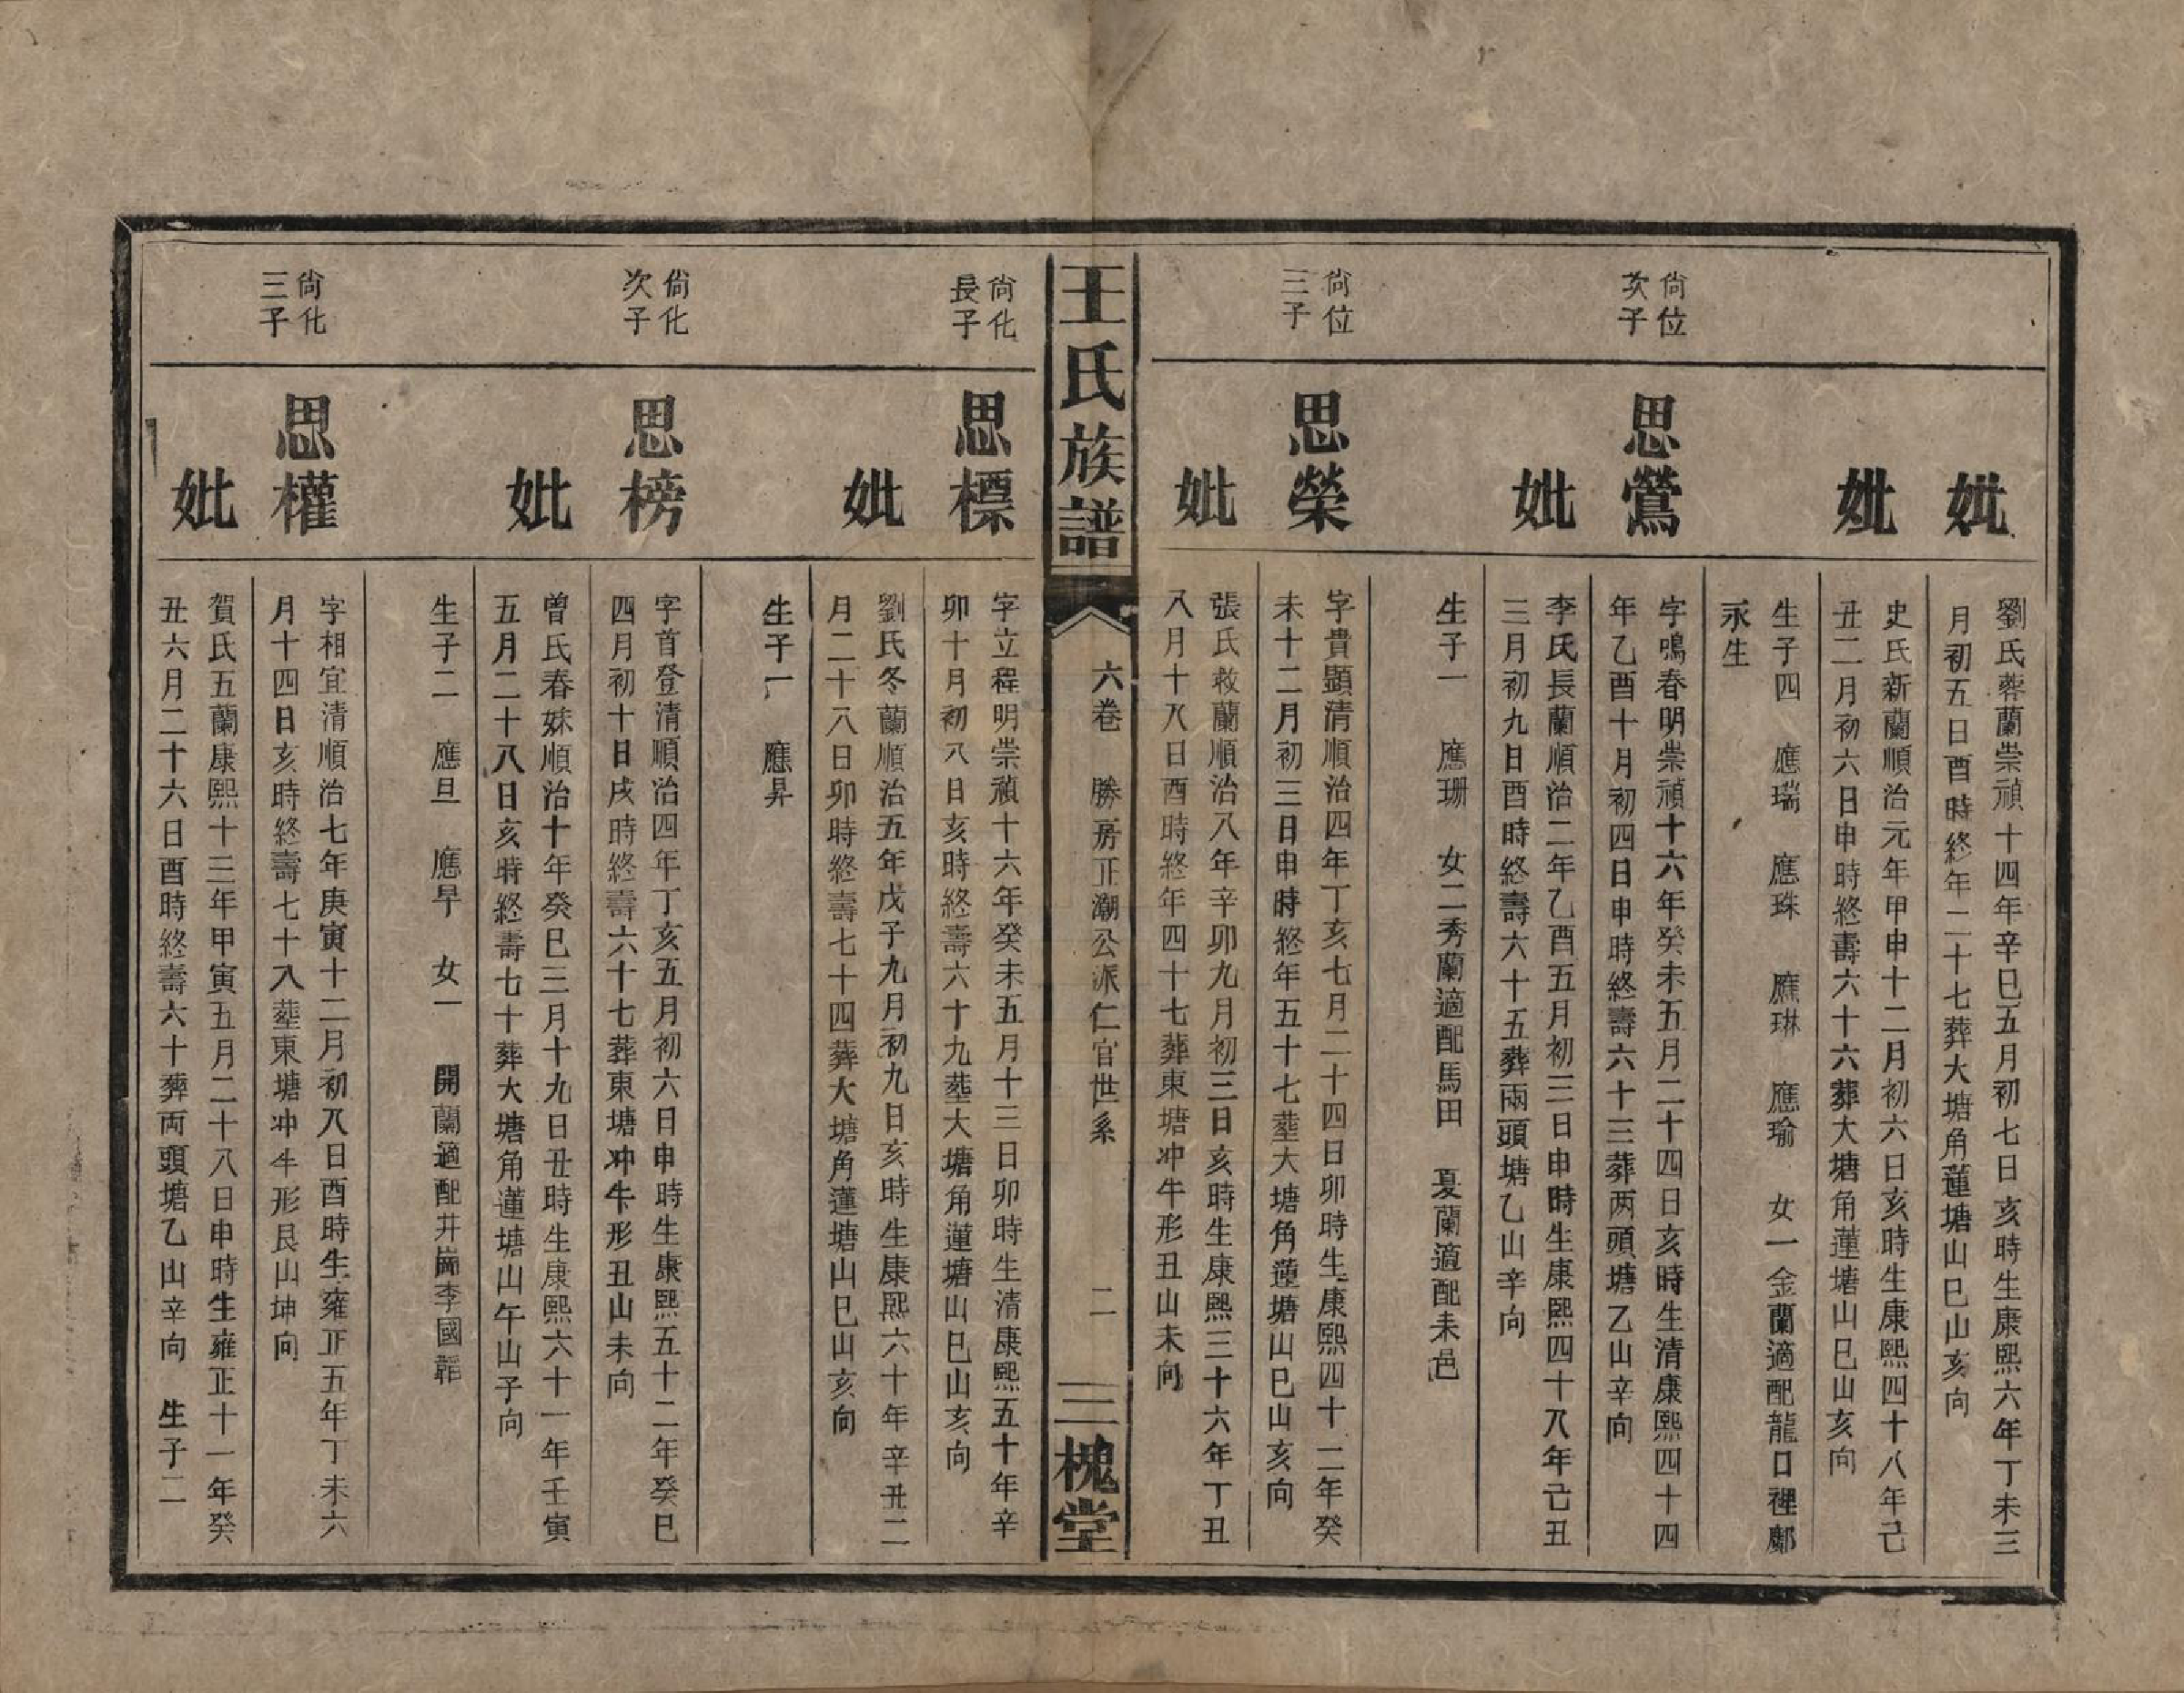 妣
劉氏蓉蘭崇禎十四年辛巳五月初七日亥時生康熙六年丁未三
月初五日酉時終年二十七葬大塘角蓮塘山巳山亥向
妣
史氏新蘭順治元年甲申十二月初六日亥時生康熙四十八年己
丑二月初六日申時終壽六十六葬大塘角蓮塘山巳山亥向
生子四 應瑞 應珠 應琳 應瑜 女一金蘭適配龍口裡鄺
永生
尙位
次子
思鶯
字鳴春明崇禎十六年癸未五月二十四日亥時生清康熙四十四
年乙酉十月初四日申時終壽六十三葬两頭塘乙山辛向
妣
李氏長蘭順治二年乙酉五月初三日申時生康熙四十八年己丑
三月初九日酉時終壽六十五葬兩頭塘乙山辛向
生子一 應珊 女二秀蘭適配馬田 夏蘭適配耒邑
尙位
三子
思榮
字貴顯清順治四年丁亥七月二十四日卯時生康熙四十二年癸
未十二月初三日申時終年五十七塟大塘角蓮塘山巳山亥向
妣
張氏救蘭順治八年辛卯九月初三日亥時生康熙三十六年丁丑
八月十八日酉時終年四十七葬東塘冲牛形丑山未向
王氏族譜
六卷 勝房正潮公派仁官世系 二
三槐堂
尙化
長子
思標
字立程明崇禎十六年癸未五月十三日卯時生清康熙五十年辛
卯十月初八日亥時終壽六十九塟大塘角蓮塘山巳山亥向
妣
劉氏冬蘭順治五年戊子九月初九日亥時生康熙六十年辛丑二
月二十八日卯時終壽七十四葬大塘角蓮塘山巳山亥向
生子一 應昇
尙化
次子
思榜
字首登清順治四年丁亥五月初六日申時生康熙五十二年癸巳
四月初十日戌時終壽六十七葬東塘冲牛形丑山未向
妣
曾氏春妹順治十年癸巳三月十九日丑時生康熙六十一年壬寅
五月二十八日亥時終壽七十葬大塘角蓮塘山午山子向
生子二 應旦 應早 女一 開蘭適配井崗李國
尙化
三子
思權
字相宜清順治七年庚寅十二月初八日酉時生雍正五年丁未六
月十四日亥時終壽七十八塟東塘冲牛形艮山坤向
妣
賀氏五蘭康熙十三年甲寅五月二十八日申時生雍正十一年癸
丑六月二十六日酉時終壽六十葬両頭塘乙山辛向 生子二